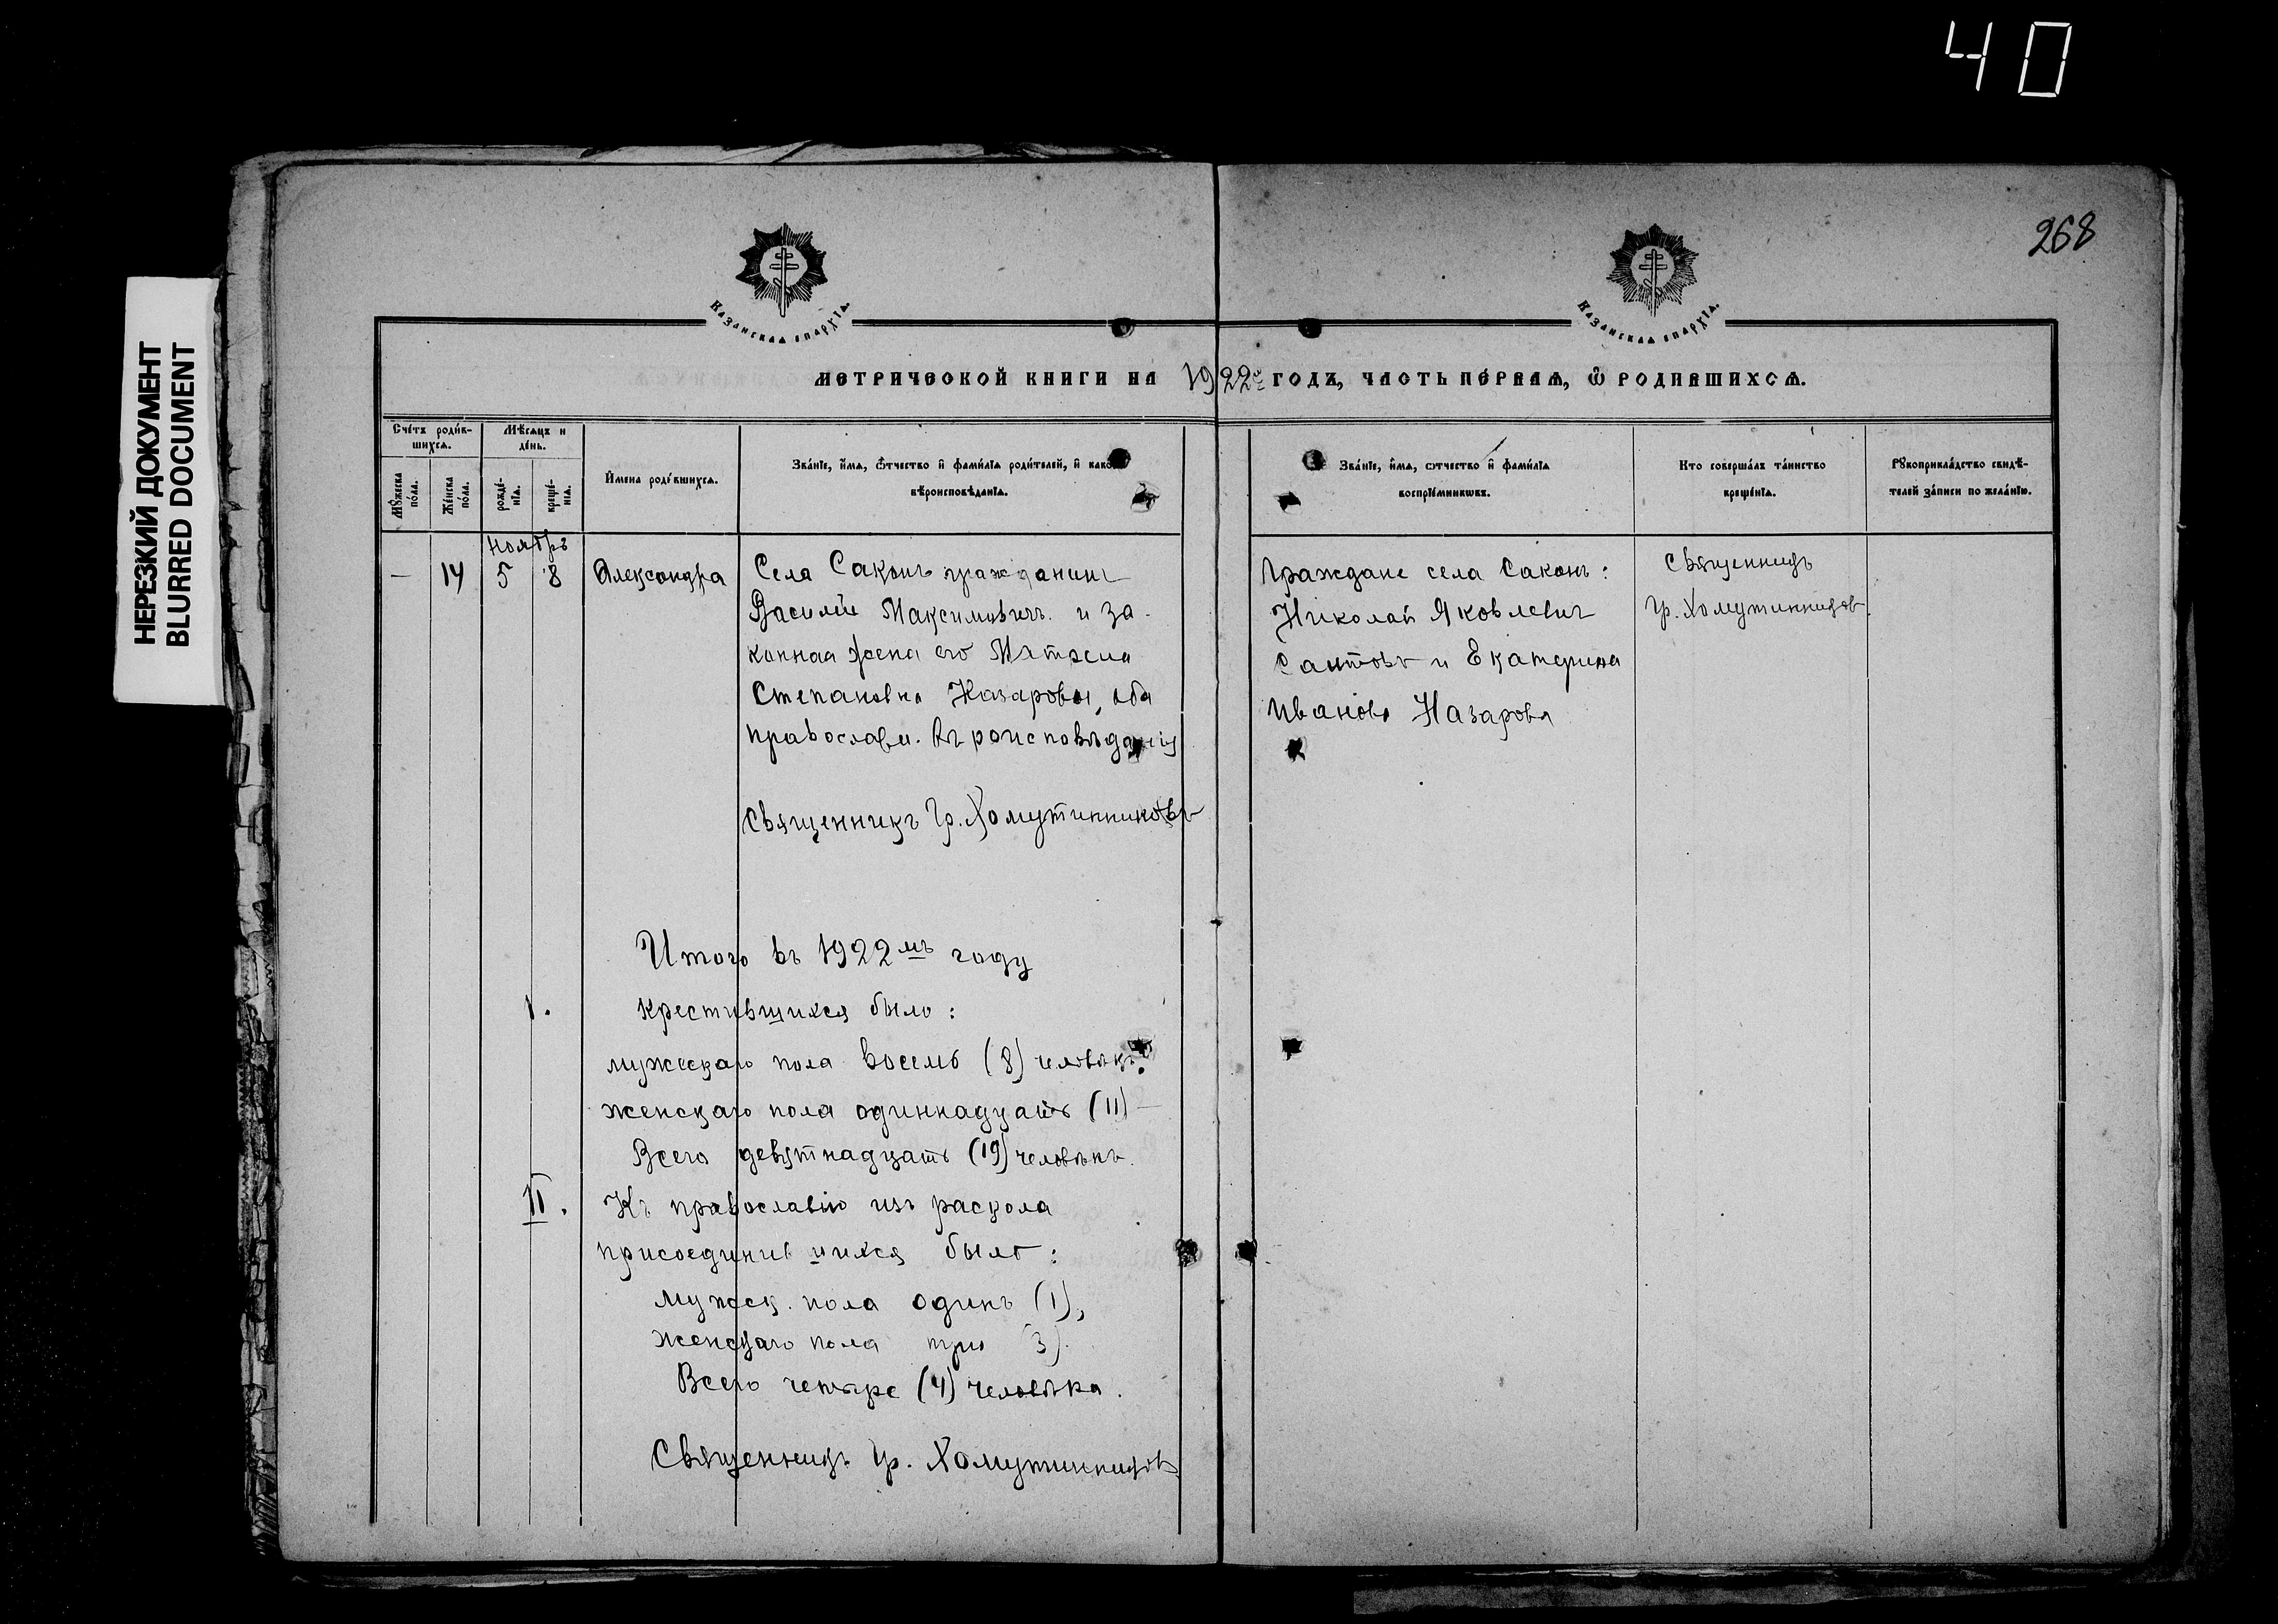 40
НЕРЕЗКИЙ ДОКУМЕНТ
BLURRED DOCUMENT
268
Казанская епархїя.
Казанская епархїя.
МЕТРИЧЕСКОЙ КНИГИ НА 1922й ГОДЪ, ЧАСТЬ ПЕ́РВАЯ, Ѡ РОДИВШИХСѦ.
Сче́тъ роди́в-
шихсѧ.
Мѣ́сѧцъ и
де́нь.
Мꙋ́жеска
по́ла.
Же́нска
по́ла.
рожде́-
нїѧ.
креще́-
нїѧ.
И́мена роди́вшихсѧ.
Зва́нїе, и҆́мѧ, ѻ҆́тчество и҆ фами́лїѧ роди́телей, и҆ како
вѣроисповѣ́данїѧ.
Зва́нїе, и҆́мѧ, ѻ҆тчество и҆ фами́лїѧ
воспрїе́мниковъ.
Кто соверша́лъ та́инство
креще́нїѧ.
Рꙋкоприкла́дство свидѣ́-
телей за́писи по жела́нїю.
Ноябрь
— 14 5 8 Александра
Села Саконъ гражданинъ
Василій Максимовичъ и за-
конная жена его
Степановна Назаровы, оба
православн. вѣроисповѣданія
Священникъ Гр. Хомутинниковъ
Граждане села Саконъ:
Николай Яковлевич
Саитовъ и Екатерина
Иванова Назарова
Священникъ
Гр. Хомутинниковъ.
Итого въ 1922мъ году
I. крестившихся было:
мужескаго пола восемь (8) человѣкъ
женскаго пола одиннадцать (11) —
Всего девятнадцать (19) человѣкъ.
II. Къ православію изъ раскола
присоединившихся было:
мужеск. пола одинъ (1),
женскаго пола три (3).
Всего четыре (4) человѣка.
Священникъ Гр. Хомутинниковъ